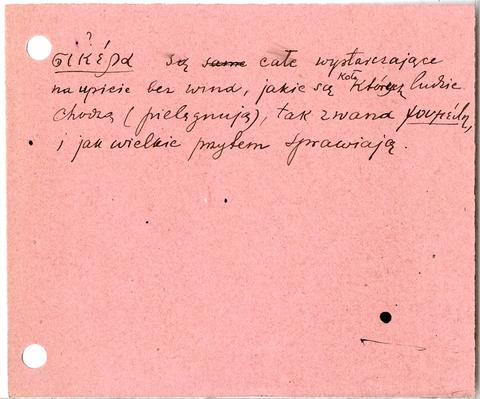 ?
σικέρα są same całe wystarczające
na upicie bez wina, jakie są koło których ludzie
chodzą (pielęgnują), tak zwana
i jak wielkie przytem sprawiają.